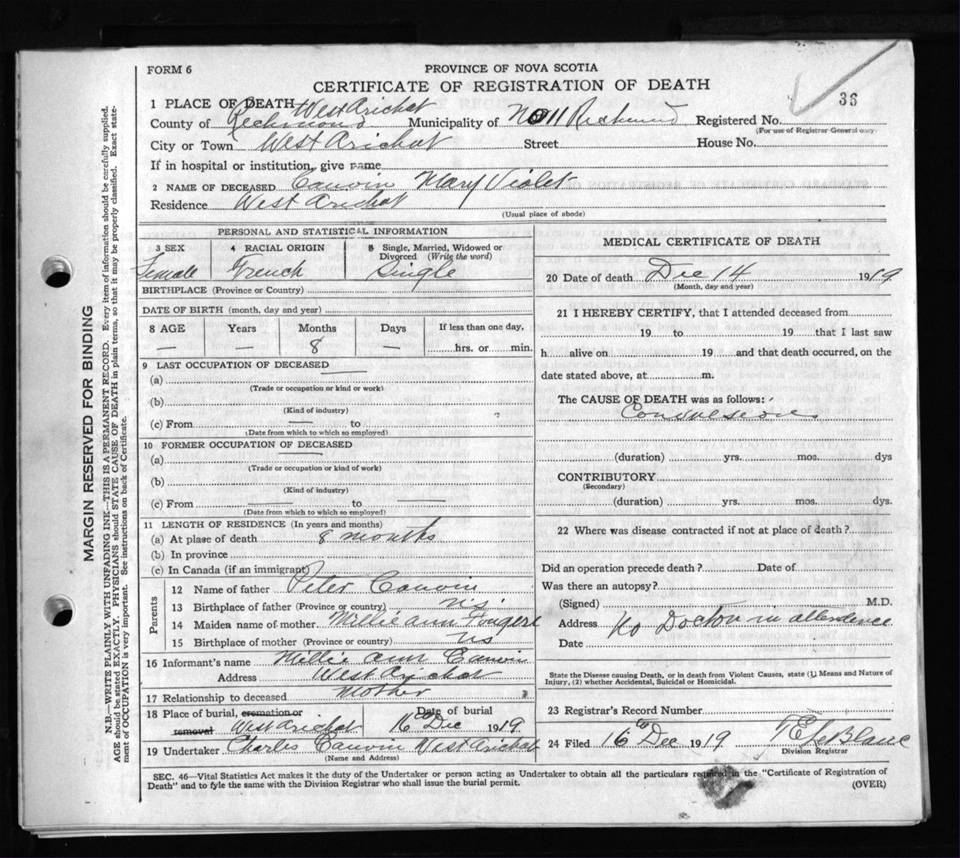 FORM 6
PROVINCE OF NOVA SCOTIA
CERTIFICATE OF REGISTRATION OF DEATH
36
1 PLACE OF DEATH West Arichat
County of Richmond Municipality of No 11 Richmond Registered No.
(For use of Registrar General only)
City or Town West Arichat Street House No.
If in hospital or institution, give name
2 NAME OF DECEASED Cauvin Mary Violet
Residence West Arichat
(Usual place of abode)
PERSONAL AND STATISTICAL INFORMATION
3 SEX 4 RACIAL ORIGIN 5 Single, Married, Widowed or Divorced (Write the word)
Female French Single
BIRTHPLACE (Province or Country)
DATE OF BIRTH (month, day and year)
8 AGE Years Months Days If less than one day,
— — 8 — hrs. or min.
9 LAST OCCUPATION OF DECEASED —
(a)
(Trade or occupation or kind or work)
(b)
(Kind of industry)
(c) From — to
(Date from which to which so employed)
10 FORMER OCCUPATION OF DECEASED
(a) —
(Trade or occupation or kind of work)
(b)
(Kind of industry)
(c) From — to —
(Date from which to which so employed)
11 LENGTH OF RESIDENCE (In years and months)
(a) At place of death 8 months
(b) In province
(c) In Canada (if an immigrant)
Parents
12 Name of father Peter Cauvin
13 Birthplace of father (Province or country) N.S.
14 Maiden name of mother Millie ann Fougere
15 Birthplace of mother (Province or country) NS
16 Informant's name Millie ann Cauvin
Address West Arichat
17 Relationship to deceased Mother
18 Place of burial, cremation or removal West Arichat Date of burial 16th Dec 1919
19 Undertaker Charles Cauvin West Arichat
(Name and Address)
MEDICAL CERTIFICATE OF DEATH
20 Date of death Dec 14 1919
(Month, day and year)
21 I HEREBY CERTIFY, that I attended deceased from
19 to 19 that I last saw
h alive on 19 and that death occurred, on the
date stated above, at m.
The CAUSE OF DEATH was as follows:
Convulsions
(duration) yrs. mos. dys
CONTRIBUTORY
(Secondary)
(duration) yrs. mos. dys.
22 Where was disease contracted if not at place of death?
Did an operation precede death? Date of
Was there an autopsy?
(Signed) M.D.
Address No Doctor in attendence
Date
State the Disease causing Death, or in death from Violent Causes, state (1) Means and Nature of
Injury, (2) whether Accidental, Suicidal or Homicidal.
23 Registrar's Record Number
24 Filed 16th Dec 1919 T E LeBlanc
Division Registrar
SEC. 46—Vital Statistics Act makes it the duty of the Undertaker or person acting as Undertaker to obtain all the particulars required in the "Certificate of Registration of
Death" and to fyle the same with the Division Registrar who shall issue the burial permit.
(OVER)
MARGIN RESERVED FOR BINDING
N.B.—WRITE PLAINLY WITH UNFADING INK—THIS IS A PERMANENT RECORD. Every item of information should be carefully supplied.
AGE should be stated EXACTLY. PHYSICIANS should STATE CAUSE OF DEATH in plain terms, so that it may be properly classified. Exact state-
ment of OCCUPATION is very important. See instructions on back of Certificate.